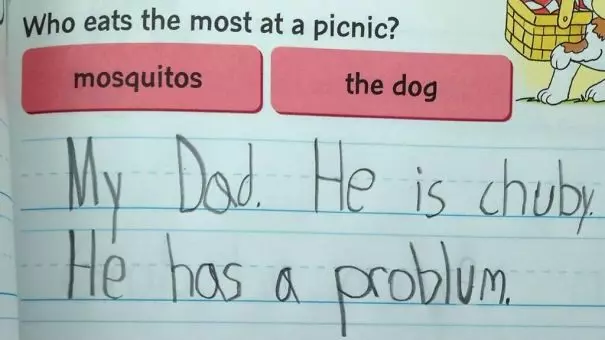 Who eats the most at a picnic?
mosquitos
the dog
My Dad. He is chuby.
He has a problum.